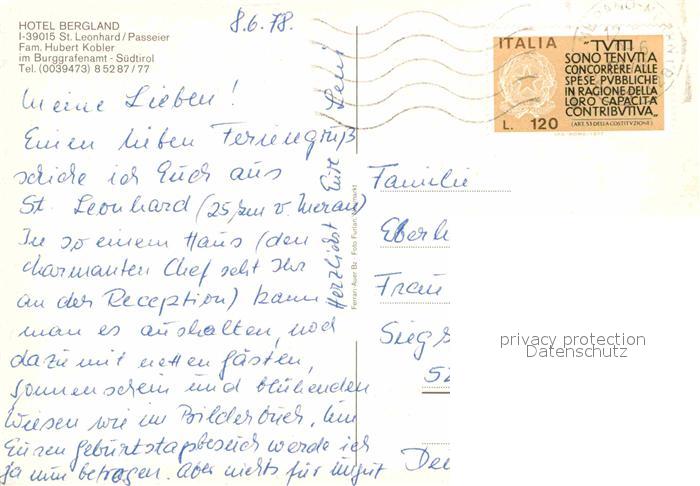 HOTEL BERGLAND
I-39015 St. Leonhard / Passeier
Fam. Hubert Kobler
im Burggrafenamt - Südtirol
Tel. (0039473) 8 52 87 / 77
8.6.78.
Meine Lieben!
Einen lieben Feriengruß
schicke ich Euch aus
St. Leonhard (25 km v. Meran)
In so einem Haus (den
charmanten Chef seht Ihr
an der Reception) kann
man es aushalten, noch
dazu mit netten Gästen,
Sonnenschein und blühenden
Wiesen wie im Bilderbuch. Um
Euren Geburtstagsbesuch werde ich
ja nun betrogen. Aber nichts für ungut
Herzlichst Eure Leni
Ferrari-Auer Bz Foto Furlan
ITALIA
"TUTTI
SONO TENUTI A
CONCORRERE ALLE
SPESE PUBBLICHE
IN RAGIONE DELLA
LORO CAPACITÀ
CONTRIBUTIVA"
(ART. 53 DELLA COSTITUZIONE)
L. 120
Familie
Eberh
Frau
Siegs
Deu
privacy protection
Datenschutz